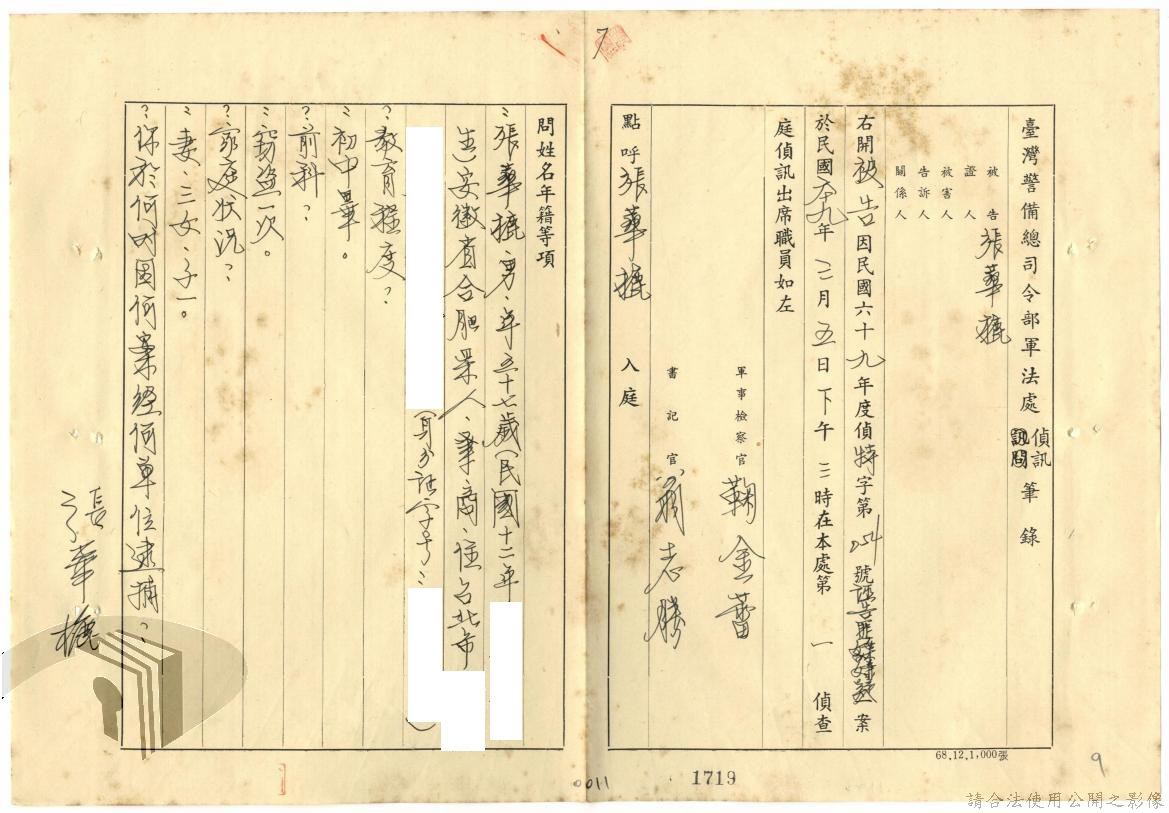 7
臺灣警備總司令部軍法處 偵訊 訊問 筆錄
被告 張華
證人
被害人
告訴人
關係人
右開被告因民國六十九年度偵特字第054號 案
於民國六十九年三月五日下午三時在本處第一偵查
庭偵訊出席職員如左
軍事檢察官 鞠金蕾
書記官 志勝
點呼張華 入庭
問姓名年籍等項
:張華 男、年五十七歲(民國十二年
生)安徽省合肥 人、業商、住台北市
(身分證字號:
)
?教育程度?
:初中畢。
?前科?
:竊盜一次。
?家庭狀況?
:妻、三女、子一。
?你於何時因何案經何單位逮捕?
張華
68.12.1,000張
1719
0011
9
請合法使用公開之影像